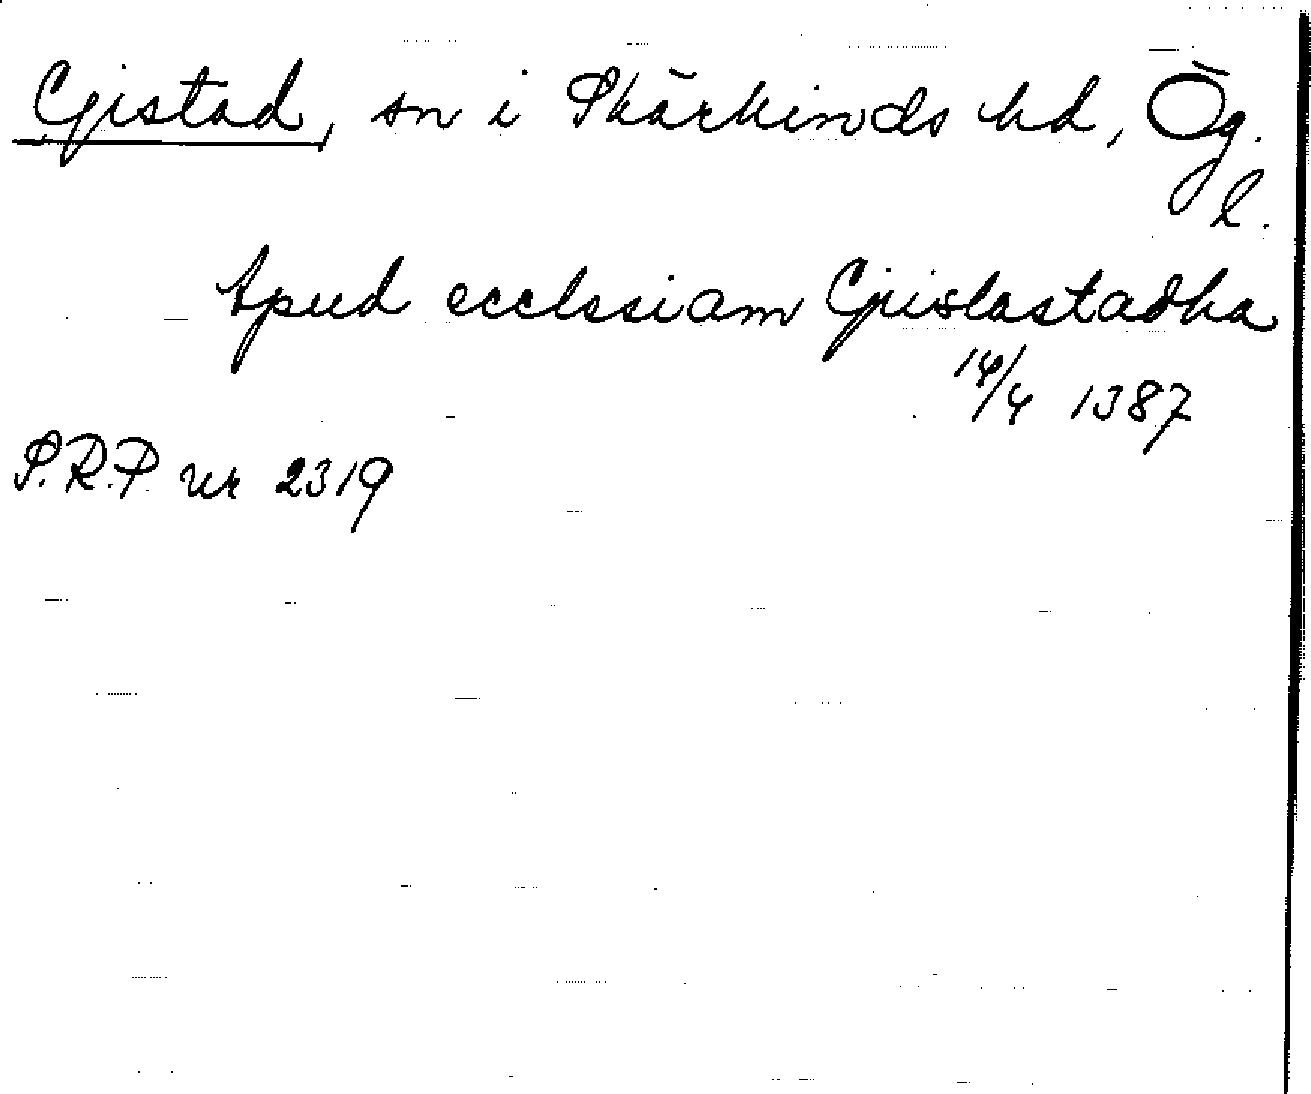 Gistad, sn i Skärkinds hd, Ög.
l.
Apud ecclesiam Giislastadha
14/4 1387
S.R.P. nr 2319